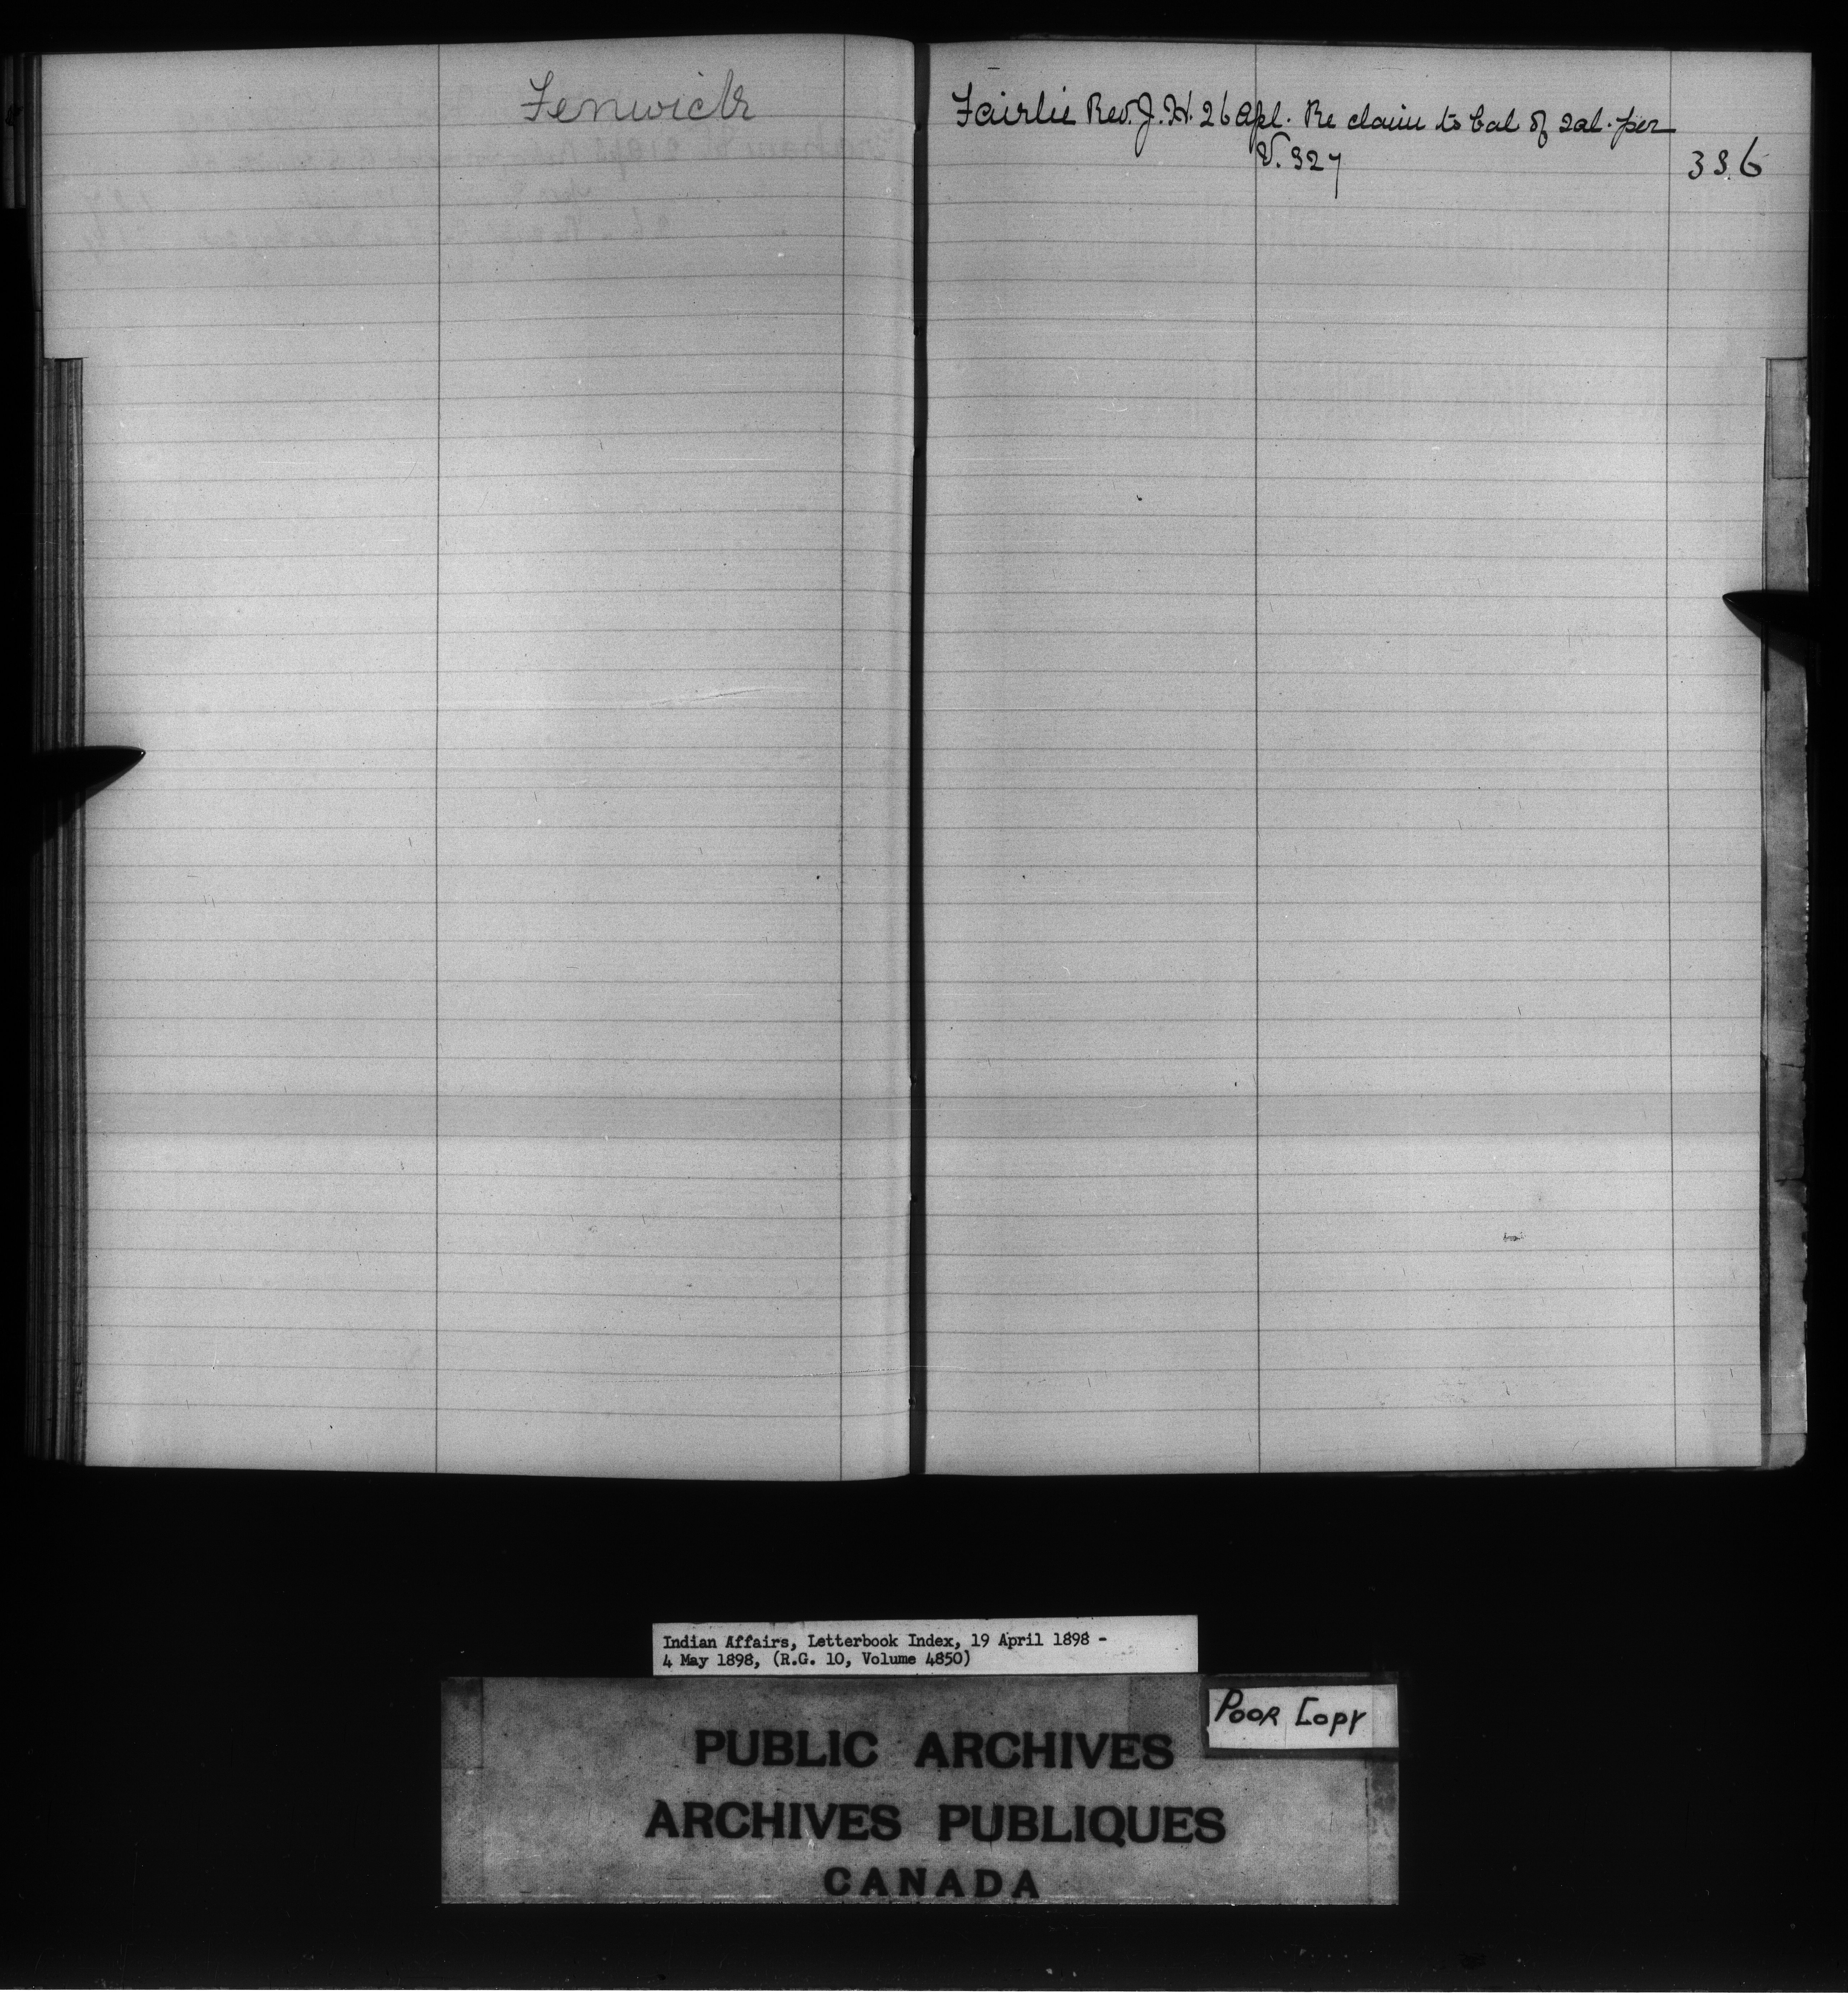 Fenwick
Fairlie Rev. J. H. 26 Apl. Re claim to bal of sal. per
V. 327
336
Indian Affairs, Letterbook Index, 19 April 1898 -
4 May 1898, (R.G. 10, Volume 4850)
POOR COPY
PUBLIC ARCHIVES
ARCHIVES PUBLIQUES
CANADA